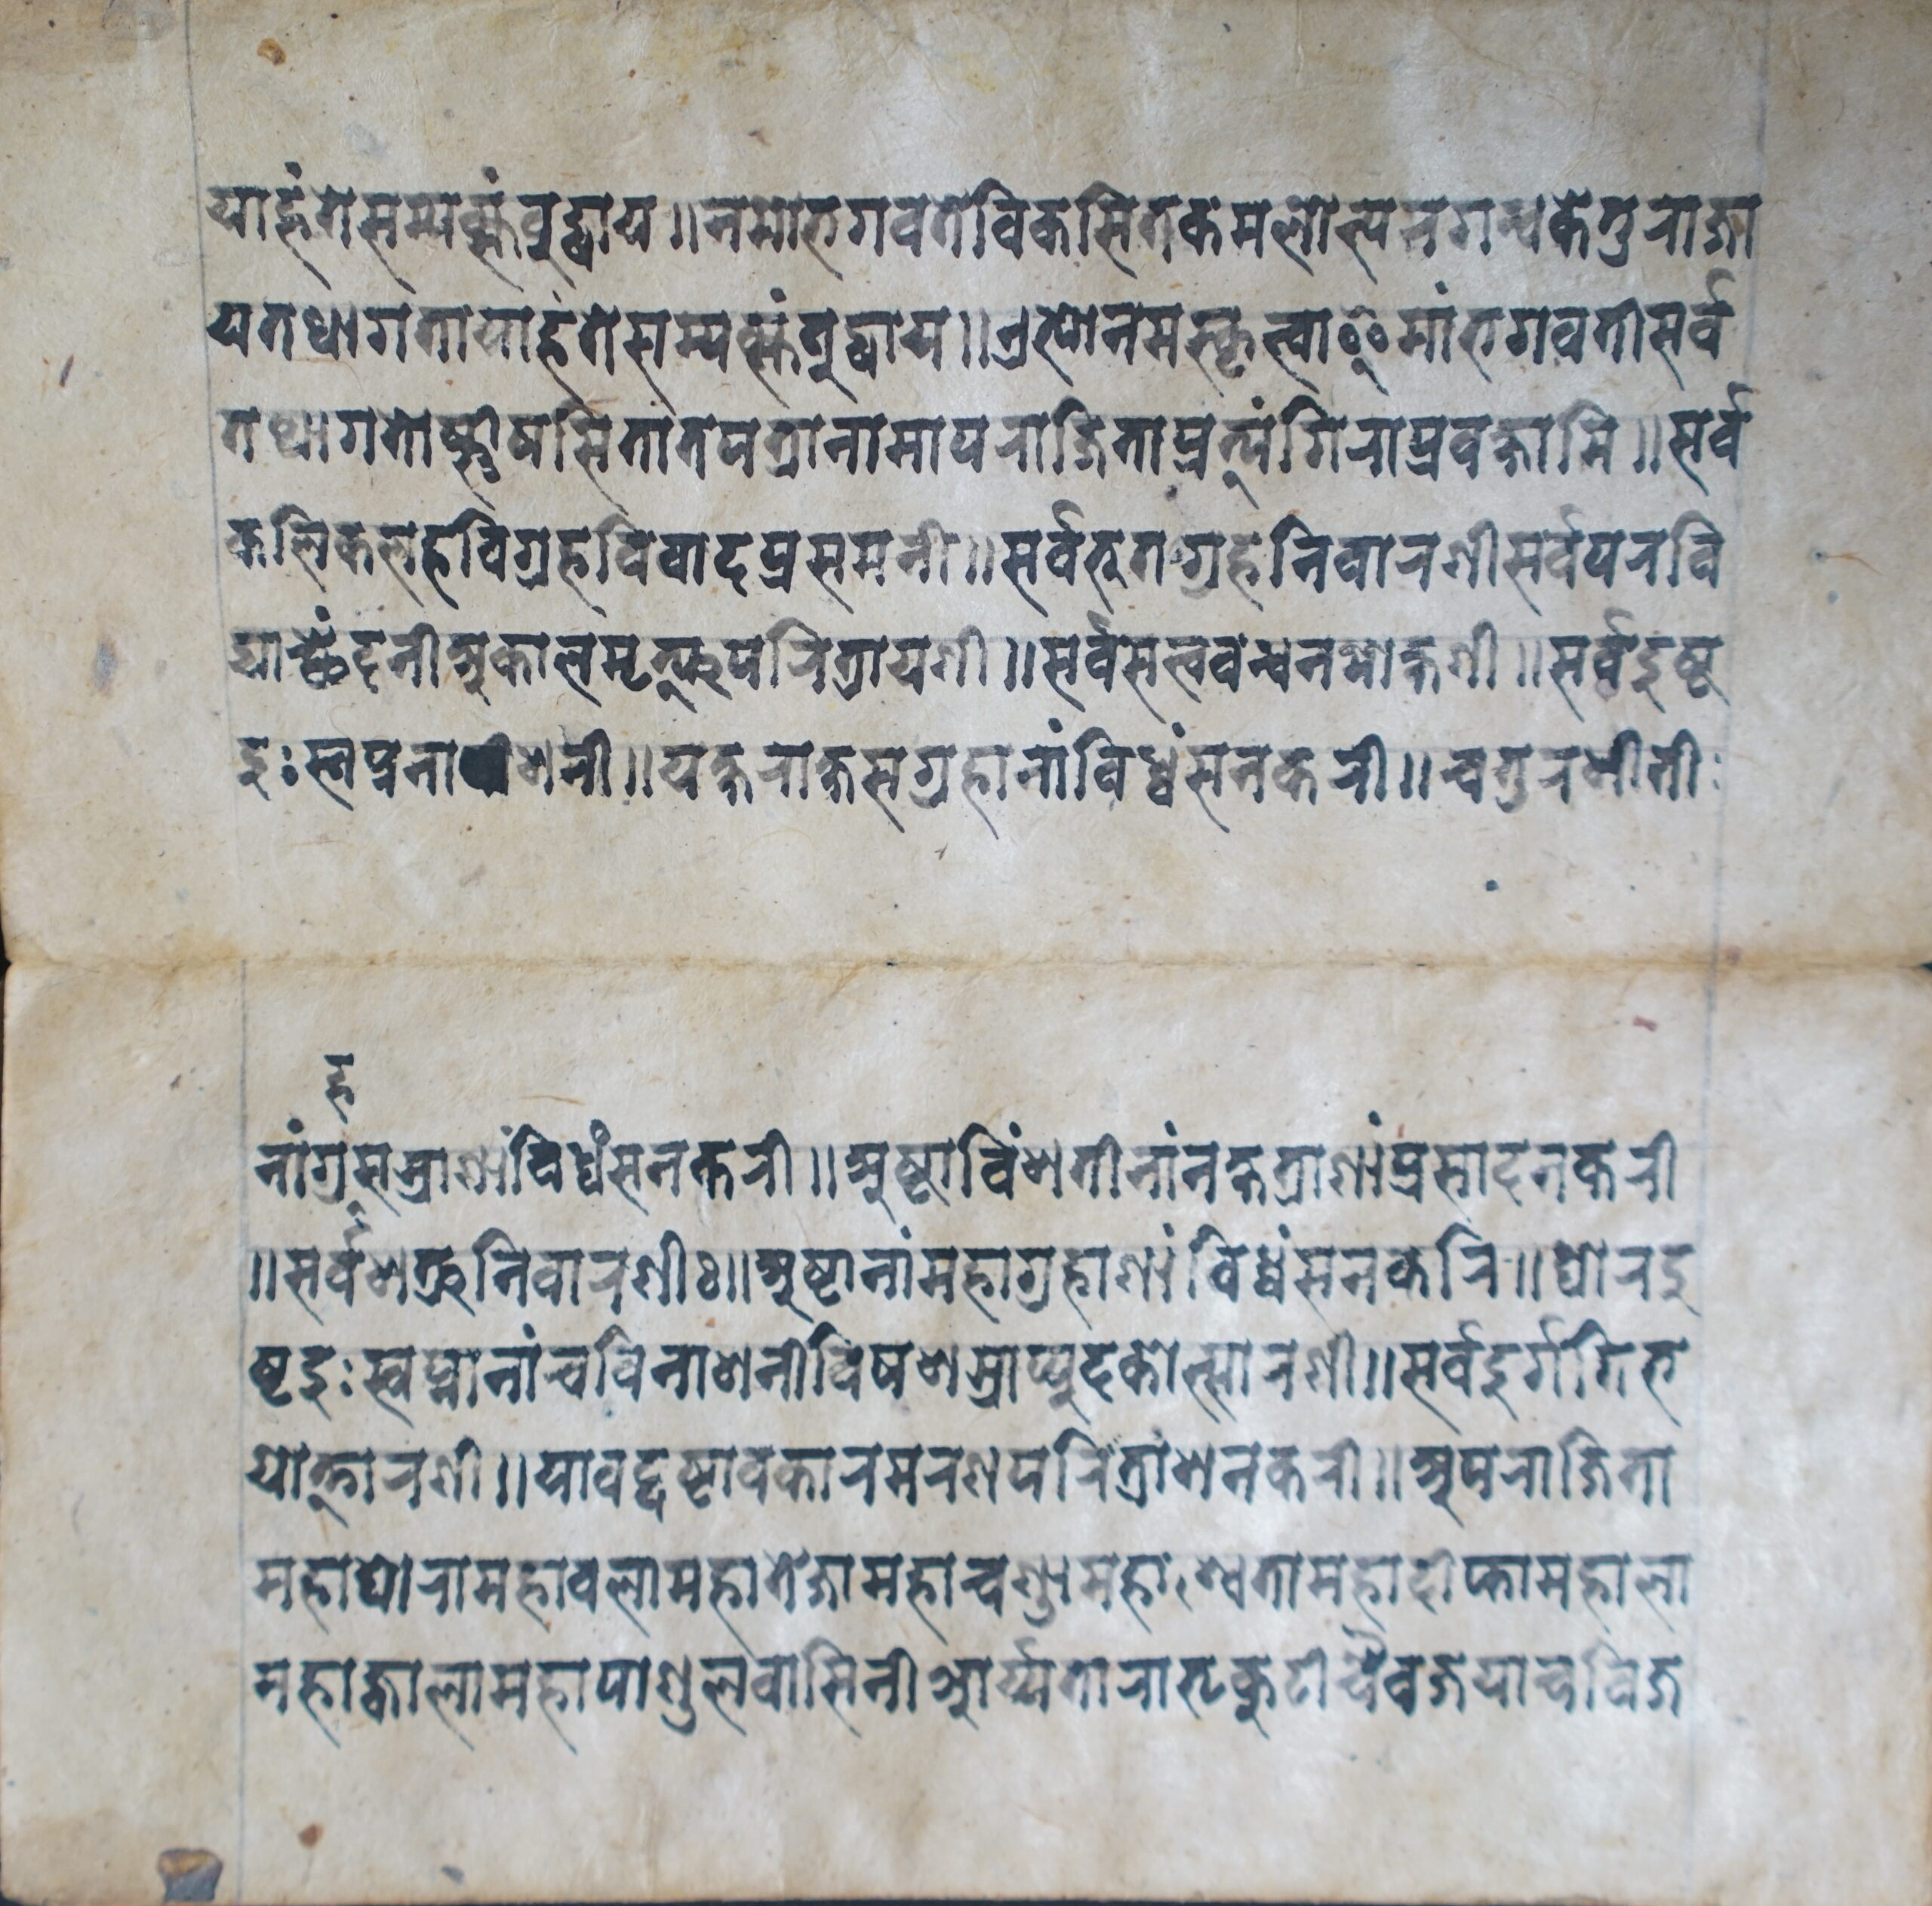 यार्हंतेसम्यक्संवुद्धाय॥नमोभगवतेविकसितकमलोत्पनगन्धकेतुराजा
यतथागतायार्हंतेसम्यक्संवुद्धाय॥एभ्योनमस्कृत्वाइमांभगवतीसर्व
तथागतोष्णीषसितातपत्रानामापराजिताप्रत्यंगिराप्रवक्षामि॥सर्व
कलिकलहविग्रहविवादप्रसमनी॥सर्वभूतग्रहनिवारणीसर्वपरवि
द्याच्छेंदनीअकालमृत्युपरित्रायणी॥सर्वसत्ववन्धनमोक्षणी॥सर्वदुष्ट
दुःस्वप्ननाशनी॥यक्षराक्षसग्रहानांविध्वंसनकरी॥चतुरशीती
ह
नांग्रसस्राणांविध्वंसनकरी॥अष्टाविंशतीनांनक्षत्राणांप्रसादनकरी
॥सर्वशत्रुनिवारणीः॥अष्टानांमहाग्रहाणांविध्वंसनकरि॥घोरदु
ष्टदुःस्वप्नानांचविनाशनीविषशस्त्राप्युदकोत्सारणी॥सर्वदुर्गगिभ
योत्तारणी॥यावद्दष्टावकारमरणपरित्राशनकरी॥अपराजिता
महाघोरामहावलामहातेजामहाचण्डामहाश्वेतामहादीप्तामहाला
महाज्वालामहापाशुलवासिनीआर्य्यताराभृकुटीचैवजयाचविज